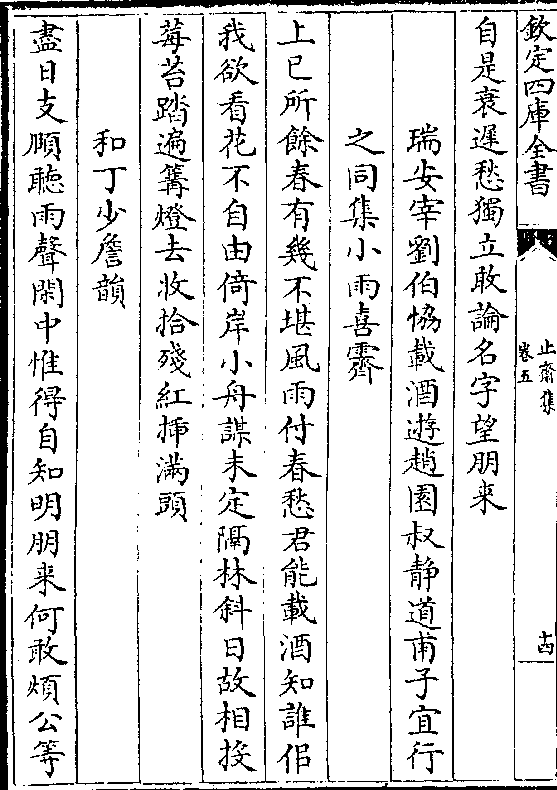 欽定四庫全書
止齋集
卷五
十四
自是衰遲愁獨立敢論名字望朋来
瑞安宰劉伯恊載酒遊趙園叔静道甫子宜行
之同集小雨喜霽
上已所餘春有幾不堪風雨付春愁君能載酒知誰侶
我欲看花不自由倚岸小舟謀未定隔林斜日故相投
莓苔踏遍篝燈去收拾殘紅揷滿頭
和丁少詹韻
盡日支頥聽雨聲閑中惟得自知明朋来何敢煩公等